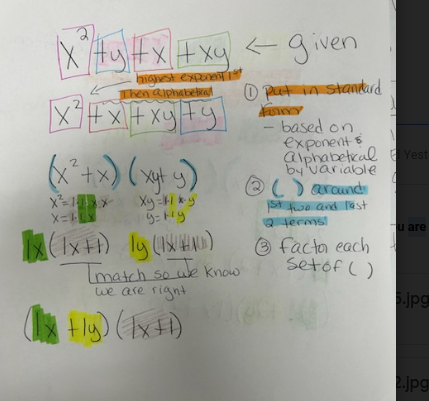 x² + y + x + xy ← given
highest exponent 1st
Then alphabetical
x² + x + xy + y
① put in standard
form
- based on
exponent &
alphabetical
by variable
(x² + x) + (xy + y)
x² = 1·1·x·x xy = 1·1·x·y
x = 1·1·x y = 1·1·y
② ( ) around
1st two and last
2 terms
1x(1x+1) 1y(1x+1)
match so we know
we are right
③ factor each
set of ( )
(1x + 1y)(1x+1)
Yest
u are
5.jpg
2.jpg